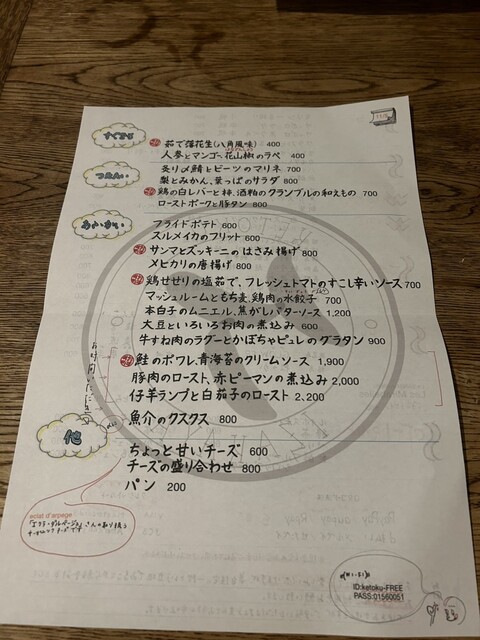 すぐでる
茹で落花生(八角風味) 400
人参とマンゴー、花山椒のラペ 400
つめたい
炙り〆鯖とビーツのマリネ 700
梨とみかん、葉っぱのサラダ 800
鶏の白レバーと柿、酒粕のクランブルの和えもの 700
ローストポークと豚タン 800
あったかい
フライドポテト 600
スルメイカのフリット 600
サンマとズッキーニのはさみ揚げ 800
メヒカリの唐揚げ 800
鶏せせりの塩茹で、フレッシュトマトのすこし辛いソース 700
マッシュルームともち麦、鶏肉の水餃子 700
本白子のムニエル、焦がしバターソース 1,200
大豆といろいろお肉の煮込み 600
牛すね肉のラグーとかぼちゃピュレのグラタン 900
鮭のポワレ、青海苔のクリームソース 1,900
豚肉のロースト、赤ピーマンの煮込み 2,000
仔羊ランプと白茄子のロースト 2,200
魚介のクスクス 800
他
ちょっと甘いチーズ 600
チーズの盛り合わせ 800
パン 200
eclat d'arpege
ID:ketoku-FREE
PASS:01560051